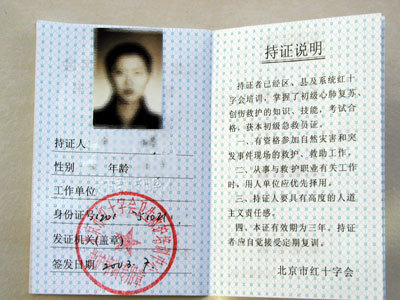 持证人
性别 年龄
工作单位
身份证号
发证机关(盖章)
签发日期 2003.7
持证说明
持证者已经区、县及系统红十
字会培训，掌握了初级心肺复苏、
创伤救护的知识、技能，考试合
格，获本初级急救员证。
一、有资格参加自然灾害和突
发事件现场的救护、救助工作。
二、从事与救护职业有关工作
时，用人单位应优先择用。
三、持证人要具有高度的人道
主义责任感。
四、本证有效期为三年，持证
者应自觉接受定期复训。
北京市红十字会